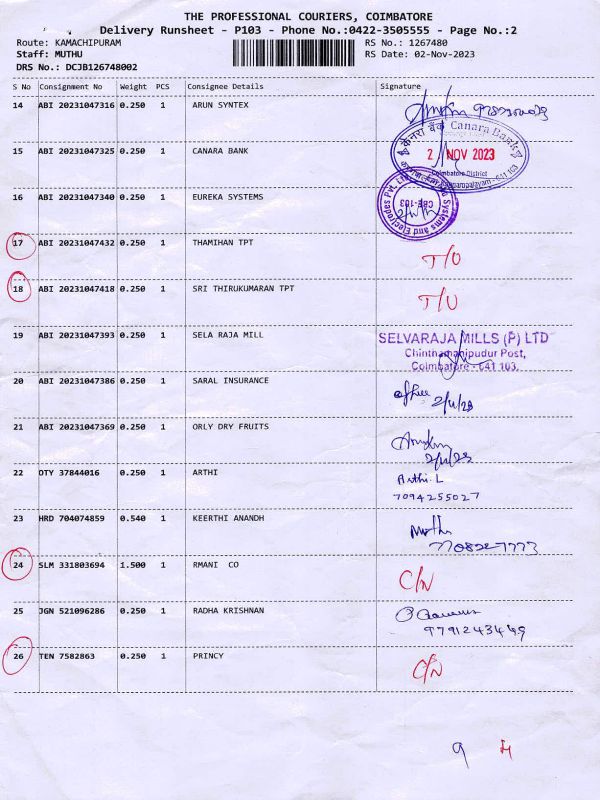 THE PROFESSIONAL COURIERS, COIMBATORE
Delivery Runsheet - P103 - Phone No.:0422-3505555 - Page No.:2
Route: KAMACHIPURAM RS No.: 1267480
Staff: MUTHU RS Date: 02-Nov-2023
DRS No.: DCJB126748002
S No Consignment No Weight PCS Consignee Details Signature
14 ABI 20231047316 0.250 1 ARUN SYNTEX
केनरा बैंक Canara Bank
15 ABI 20231047325 0.250 1 CANARA BANK 2 NOV 2023
Coimbatore District
641 103
16 ABI 20231047340 0.250 1 EUREKA SYSTEMS
Systems and Electrodes Pvt. Ltd.
CBE-103
17 ABI 20231047432 0.250 1 THAMIHAN TPT T/O
18 ABI 20231047418 0.250 1 SRI THIRUKUMARAN TPT T/O
19 ABI 20231047393 0.250 1 SELA RAJA MILL SELVARAJA MILLS (P) LTD
Chinthamanipudur Post,
Coimbatore - 641 103.
20 ABI 20231047386 0.250 1 SARAL INSURANCE
2/11/23
21 ABI 20231047369 0.250 1 ORLY DRY FRUITS
2/11/23
22 OTY 37844016 0.250 1 ARTHI Arthi. L
7094255027
23 HRD 704074859 0.540 1 KEERTHI ANANDH
24 SLM 331803694 1.500 1 RMANI CO C/N
25 JGN 521096286 0.250 1 RADHA KRISHNAN
9791243469
26 TEN 7582863 0.250 1 PRINCY C/N
9